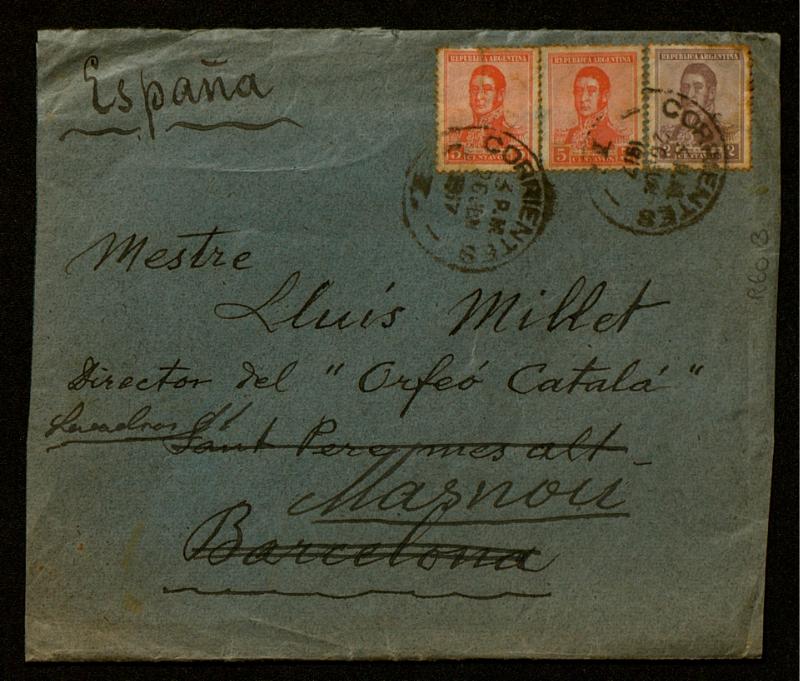 España
REPUBLICA ARGENTINA
5 CENTAVOS
REPUBLICA ARGENTINA
5 CENTAVOS
REPUBLICA ARGENTINA
2 2
CORRIENTES
3 P.M.
26 JUN
1917
CORRIENTES
1917
Mestre
Lluís Millet
Director del "Orfeó Catalá"
Sant Pere mes alt
Masnou
Barcelona
R60 B